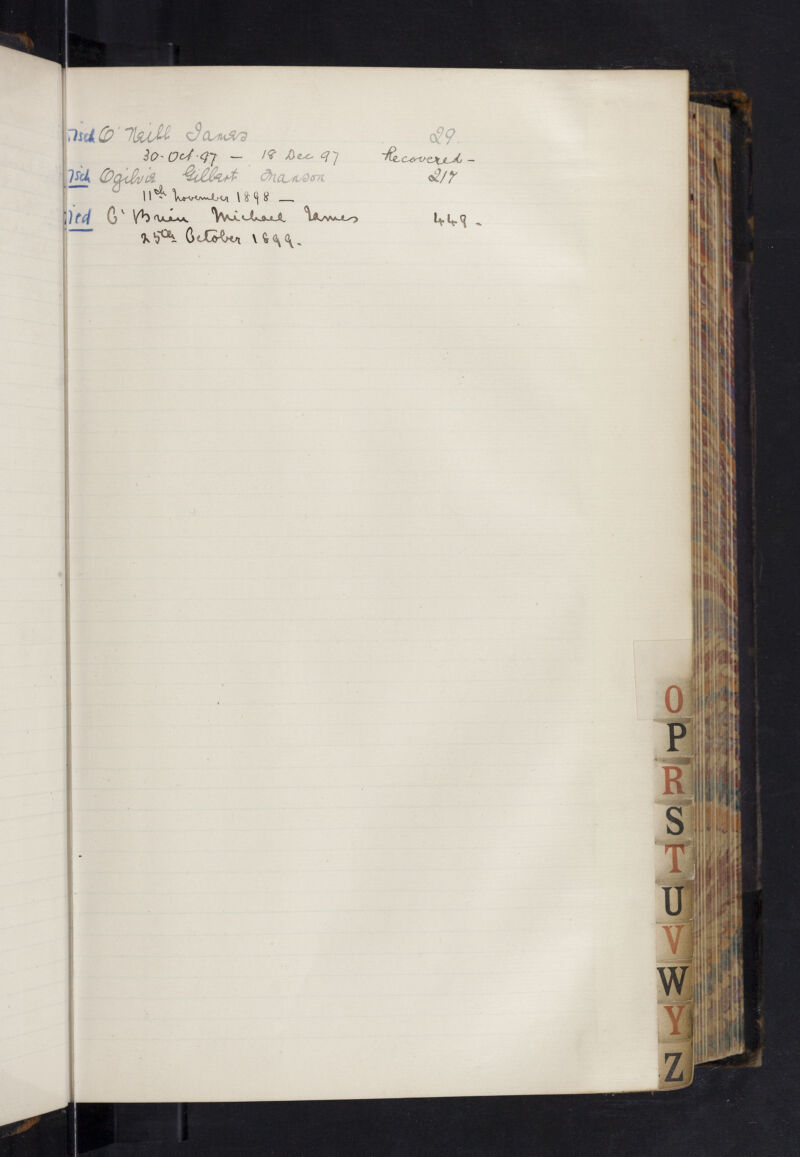 Disch O'Neill James 29.
30. Oct. 97 — 18 Dec 97 Recovered -
Disch Ogilvie Gilbert Manson 217
11th November 1898 —
Died O'Brien Michael James 449 -
25th October 1899.
O
P
R
S
T
U
V
W
Y
Z